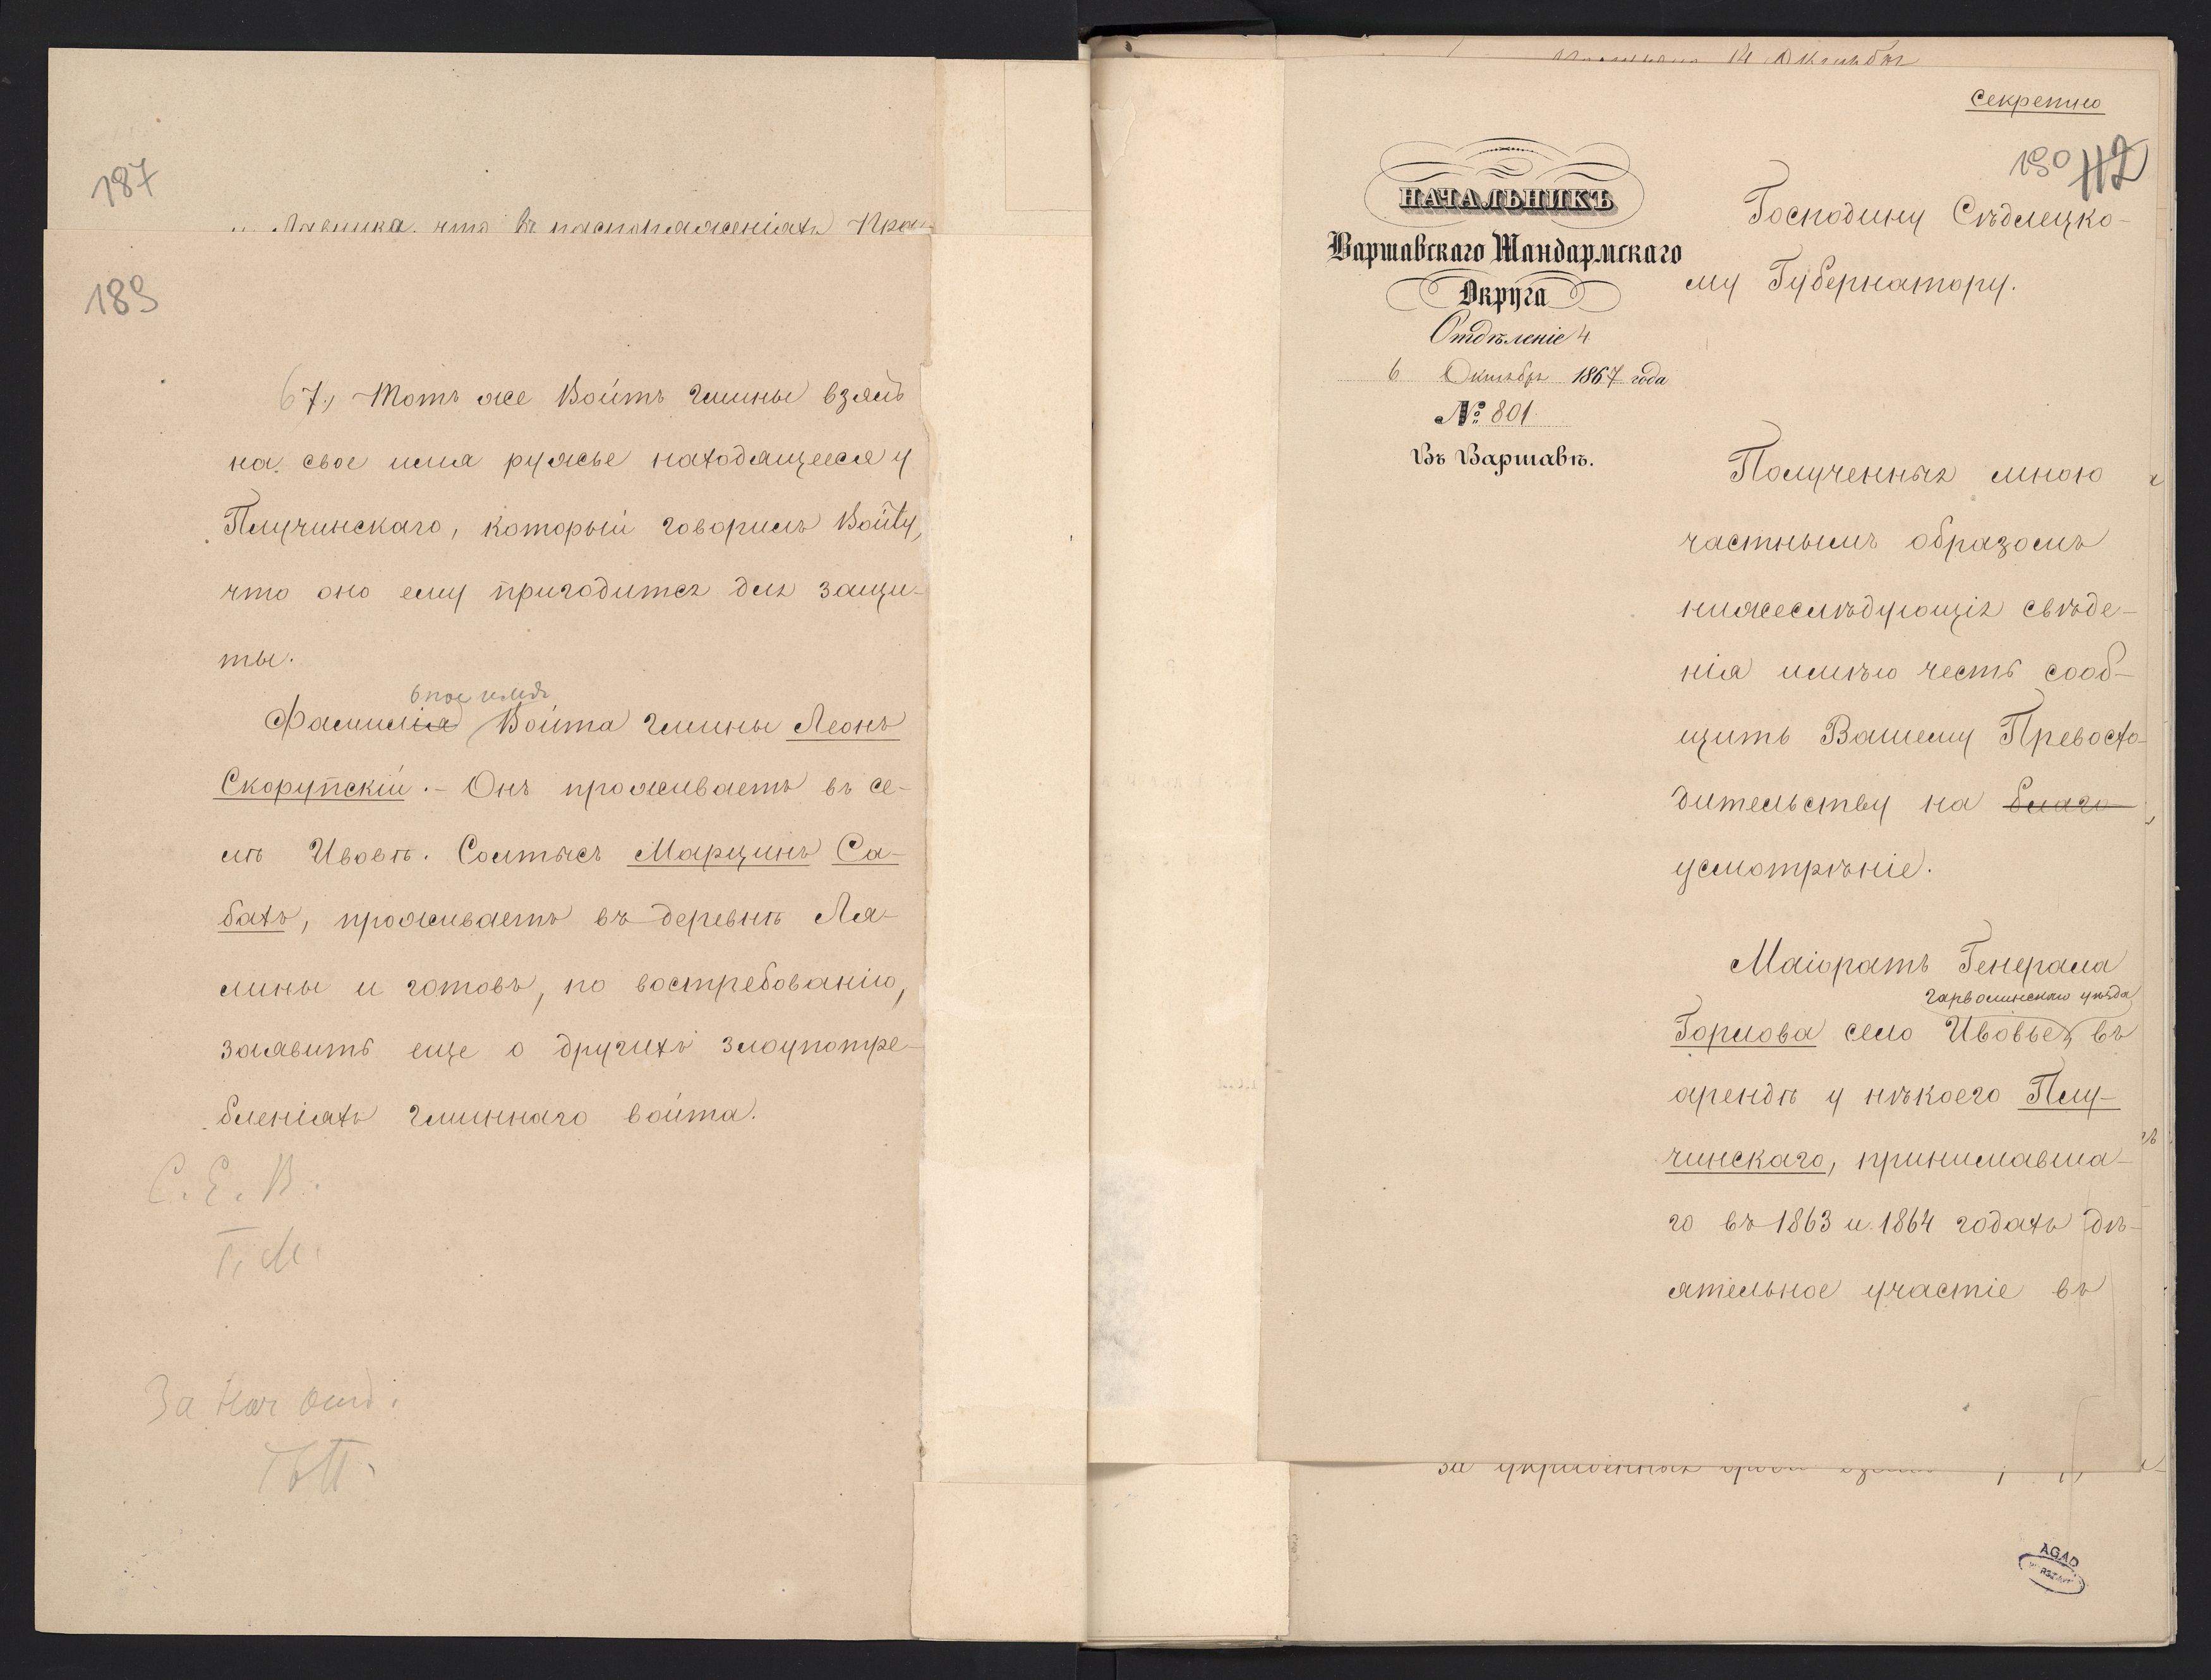 187
189
7., Тотъ же Войтъ гмины взялъ
на свое имя ружье находящееся у
Плучинскаго, который говорилъ Войту,
что оно ему пригодится для защи-
ты.
Фамилія Войта гмины Леонъ
Скорупскій. - Онъ проживаетъ въ се-
лѣ Ивовѣ. Солтысъ Марцинъ Са-
батъ, проживаетъ въ деревнѣ Ля-
лины и готовъ, по востребованію,
заявить еще о другихъ злоупотре-
бленіяхъ гминнаго войта.
С. Е. В.
Г. М.
За Нач отд.
14 Октября
Секретно
190 112
НАЧАЛЬНИКЪ
Варшавскаго Жандармскаго
Округа
Отдѣленіе 4
6 Октября 1867 года
№ 801
Въ Варшавѣ.
Господину Сѣдлецко-
му Губернатору.
Полученныя мною
частнымъ образомъ
нижеслѣдующія свѣде-
нія имѣю честь сооб-
щить Вашему Превосхо-
дительству на благо
усмотрѣніе.
Маіоратъ Генерала
гарволинскаго уѣзда
Горлова село Ивовье, въ
арендѣ у нѣкоего Плу-
чинскаго, принимавша-
го въ 1863 и 1864 годахъ дѣ-
ятельное участіе въ
AGAD